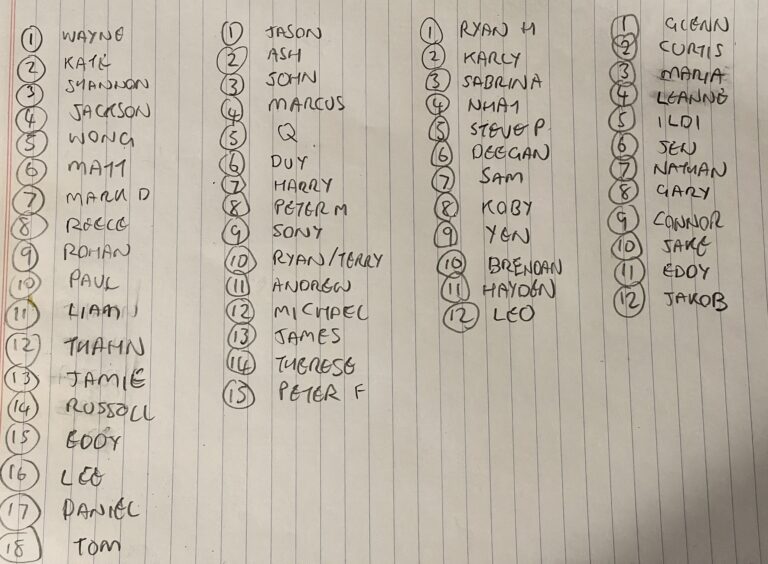 1 WAYNE
2 KATE
3 SHANNON
4 JACKSON
5 WONG
6 MATT
7 MARK D
8 REECE
9 ROMAN
10 PAUL
11 LIAM
12 THAHN
13 JAMIE
14 RUSSELL
15 EDDY
16 LEE
17 DANIEL
18 TOM
1 JASON
2 ASH
3 JOHN
4 MARCUS
5 Q
6 DUY
7 HARRY
8 PETER M
9 SONY
10 RYAN/TERRY
11 ANDREW
12 MICHAEL
13 JAMES
14 THERESE
15 PETER F
1 RYAN H
2 KARLY
3 SABRINA
4 NHAT
5 STEVE P.
6 DEEGAN
7 SAM
8 KOBY
9 YEN
10 BRENDAN
11 HAYDEN
12 LEO
1 GLENN
2 CURTIS
3 MARIA
4 LEANNE
5 ILDI
6 JEN
7 NATHAN
8 GARY
9 CONNOR
10 JAKE
11 EDDY
12 JAKOB